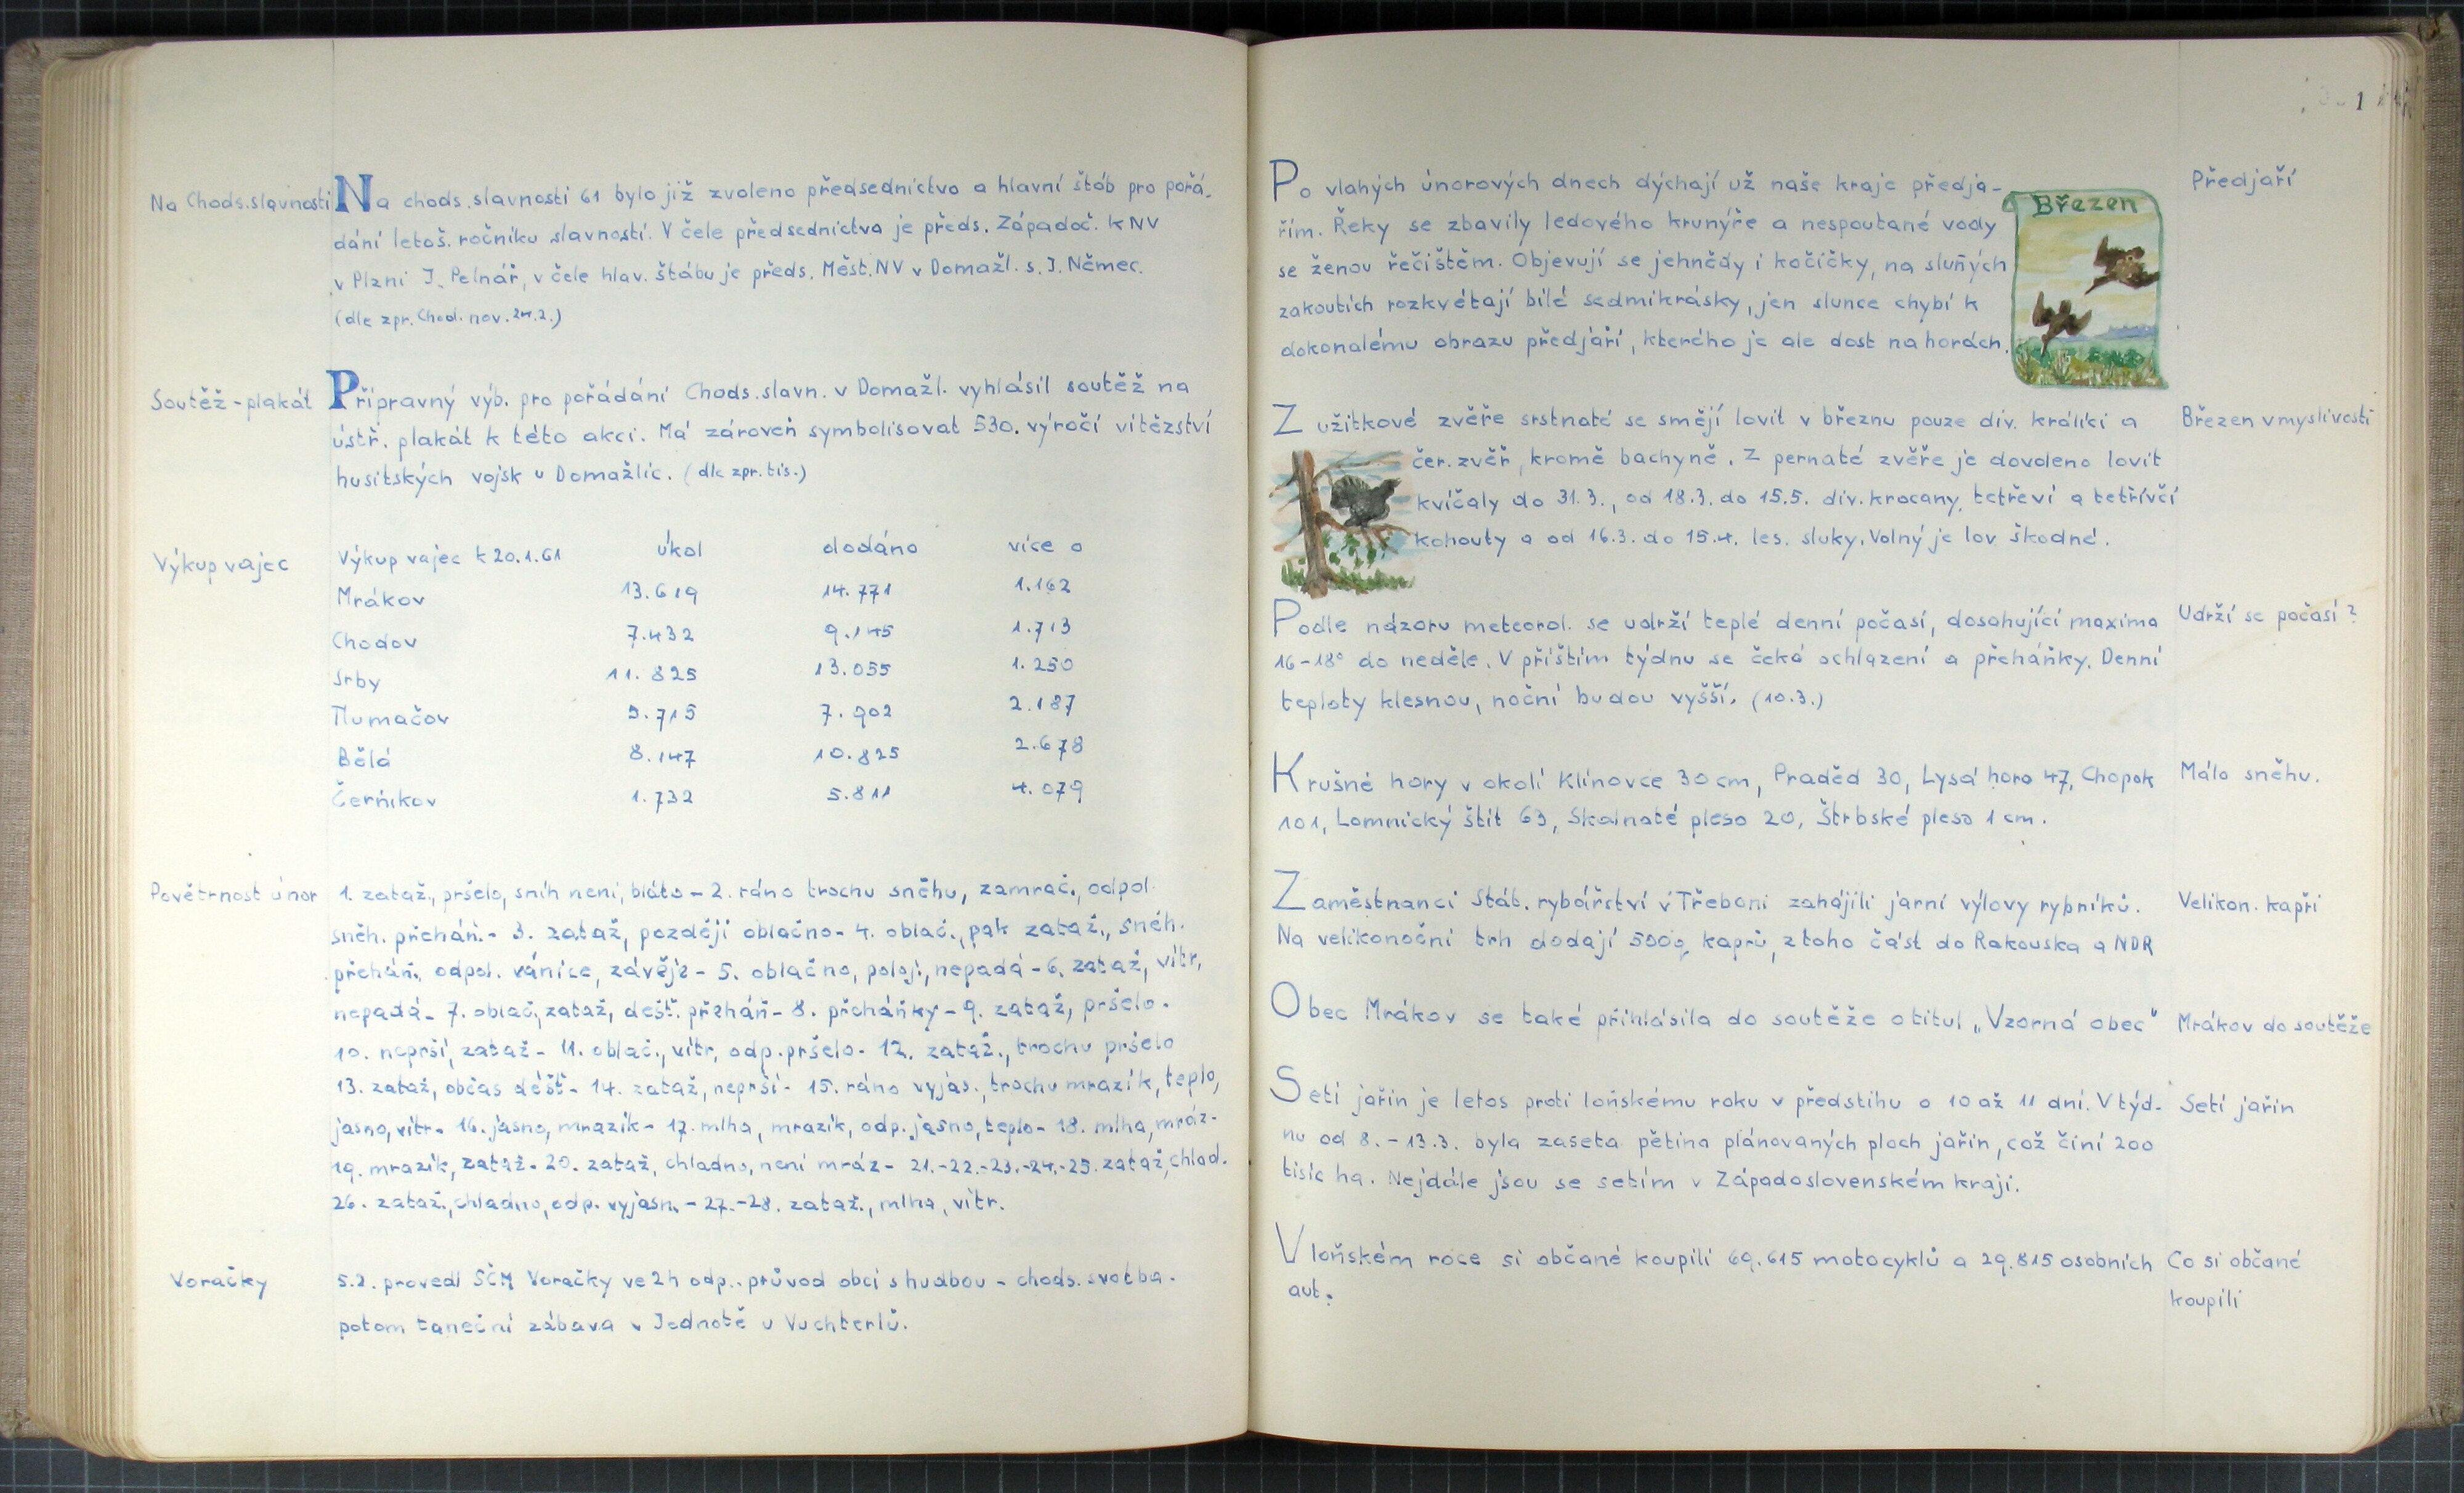 Na Chods.slavnosti
Na chods.slavnosti 61 bylo již zvoleno předsednictvo a hlavní štáb pro pořá-
dání letoš. ročníku slavností. V čele předsednictva je předs. Západoč. KNV
v Plzni J. Pelnář, v čele hlav. štábu je předs. Měst. NV v Domažl. s. J. Němec.
(dle zpr. Chod. nov. 24.2.)
Soutěž-plakát
Přípravný výb. pro pořádání Chods.slavn. v Domažl. vyhlásil soutěž na
ústř. plakát k této akci. Má zároveň symbolisovat 530. výročí vítězství
husitských vojsk u Domažlic. (dle zpr. tis.)
Výkup vajec
Výkup vajec k 20.1.61 úkol dodáno více o
Mrákov 13.619 14.771 1.162
Chodov 7.432 9.145 1.713
Srby 11.825 13.055 1.250
Tlumačov 5.715 7.902 2.187
Bělá 8.147 10.825 2.678
Černíkov 1.732 5.811 4.079
Povětrnost únor
1. zataž., pršelo, sníh není, bláto - 2. ráno trochu sněhu, zamrač., odpol.
sněh. přeháň. - 3. zataž, později oblačno - 4. oblač., pak zataž., sněh.
přeháň., odpol. vánice, závěje - 5. oblačno, poloj., nepadá - 6. zataž, vítr,
nepadá - 7. oblač, zataž, dešť. přeháň - 8. přeháňky - 9. zataž, pršelo -
10. neprší, zataž - 11. oblač., vítr, odp. pršelo - 12. zataž., trochu pršelo
13. zataž, občas déšť - 14. zataž, neprší - 15. ráno vyjas., trochu mrazík, teplo,
jasno, vítr - 16. jasno, mrazík - 17. mlha, mrazík, odp. jasno, teplo - 18. mlha, mráz -
19. mrazík, zataž - 20. zataž, chladno, není mráz - 21.-22.-23.-24.-25. zataž, chlad.
26. zataž., chladno, odp. vyjasn. - 27.-28. zataž., mlha, vítr.
Voračky
5.2. provedl SČM Voračky ve 2h odp.. průvod obcí s hudbou - chods. svatba -
potom taneční zábava v Jednotě u Vuchterlů.
1
Předjaří
Po vlahých únorových dnech dýchají už naše kraje předja-
řím. Řeky se zbavily ledového krunýře a nespoutané vody
se ženou řečištěm. Objevují se jehnědy i kočičky, na sluňých
zakoutích rozkvétají bílé sedmikrásky, jen slunce chybí k
dokonalému obrazu předjáří, kterého je ale dost na horách.
Březen
Březen v myslivosti
Z užitkové zvěře srstnaté se smějí lovit v březnu pouze div. králíci a
čer. zvěř, kromě bachyně. Z pernaté zvěře je dovoleno lovit
kvíčaly do 31.3., od 18.3. do 15.5. div. krocany, tetřeví a tetřívčí
kohouty a od 16.3. do 15.4. les. sluky. Volný je lov škodné.
Udrží se počasí?
Podle názoru meteorol. se udrží teplé denní počasí, dosahující maxima
16-18° do neděle. V příštím týdnu se čeká ochlazení a přeháňky. Denní
teploty klesnou, noční budou vyšší. (10.3.)
Málo sněhu.
Krušné hory v okolí Klínovce 30 cm, Praděd 30, Lysá hora 47, Chopok
101, Lomnický štít 63, Skalnaté pleso 20, Štrbské pleso 1 cm.
Velikon. kapři
Zaměstnanci Stát. rybářství v Třeboni zahájili jarní výlovy rybníků.
Na velikonoční trh dodají 500q kaprů, z toho část do Rakouska a NDR
Mrákov do soutěže
Obec Mrákov se také přihlásila do soutěže o titul „Vzorná obec"
Setí jařin
Setí jařin je letos proti loňskému roku v předstihu o 10 až 11 dní. V týd-
nu od 8. - 13.3. byla zaseta pětina plánovaných ploch jařin, což činí 200
tisíc ha. Nejdále jsou se setím v Západoslovenském kraji.
Co si občané
koupili
V loňském roce si občané koupili 69.615 motocyklů a 29.815 osobních
aut.